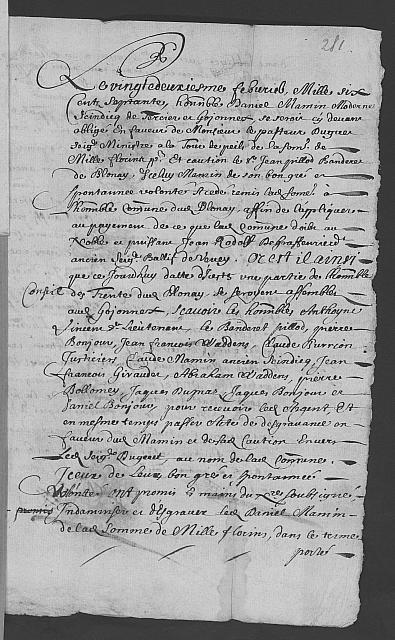 281.
Le vingtedeuxiesme febvrier, Mille six
cent septante, honnble Daniel Mamin Moderne
Scindicq de Tercier et Gojonnex, se seroit cy devant
obligé en faveur de Monsieur le pasteur Dugue
Seigr Ministre a la Tour de peils de la some de
Mille florins pt Et caution le Sr Jean pillod Banderet
de Blonay, Iceluy Mamin de son bon gré et
spontannee volonté a cede remis lad some a
lhonnble Comune dud Blonay affin de l'appliquer
au payement de ce que lad Comune doibt au
Noble et puissant Jean Rodolf
ancien Seigr Ballif de Vevey. Or est il ainsi
que ce Jourdhuy datte d'icets une partie de lhonnble
Conseil des Trente dud Blonay, se seroyent assemblés
aud Gojonnex, scavoir les honnbles Anthoyne
Vincent Sr Lieutenant, le Banderet pillod, pierre
Bonjour, Jean francois Waddens, Claude
Justiciers, Claude Mamin ancien Scindicq, Jean
francois Giraudet, Abraham Waddens, pierre
Bollomey, Jaques Dupraz, Jaques Bonjour et
Daniel Bonjour, pour recevoir led Argent, Et
en mesme temps passer Acte de desgrevance en
faveur dud Mamin et de sad Caution Envers
Led Seigr Dugue au nom de lad Comune.
Iceux de Leur bon gré et spontannee
Volonté ont promis es mains du Nre soubsigné
promis Indamniser et desgrever led Daniel Mamin
de lad somme de Mille florins, dans le terme
porté